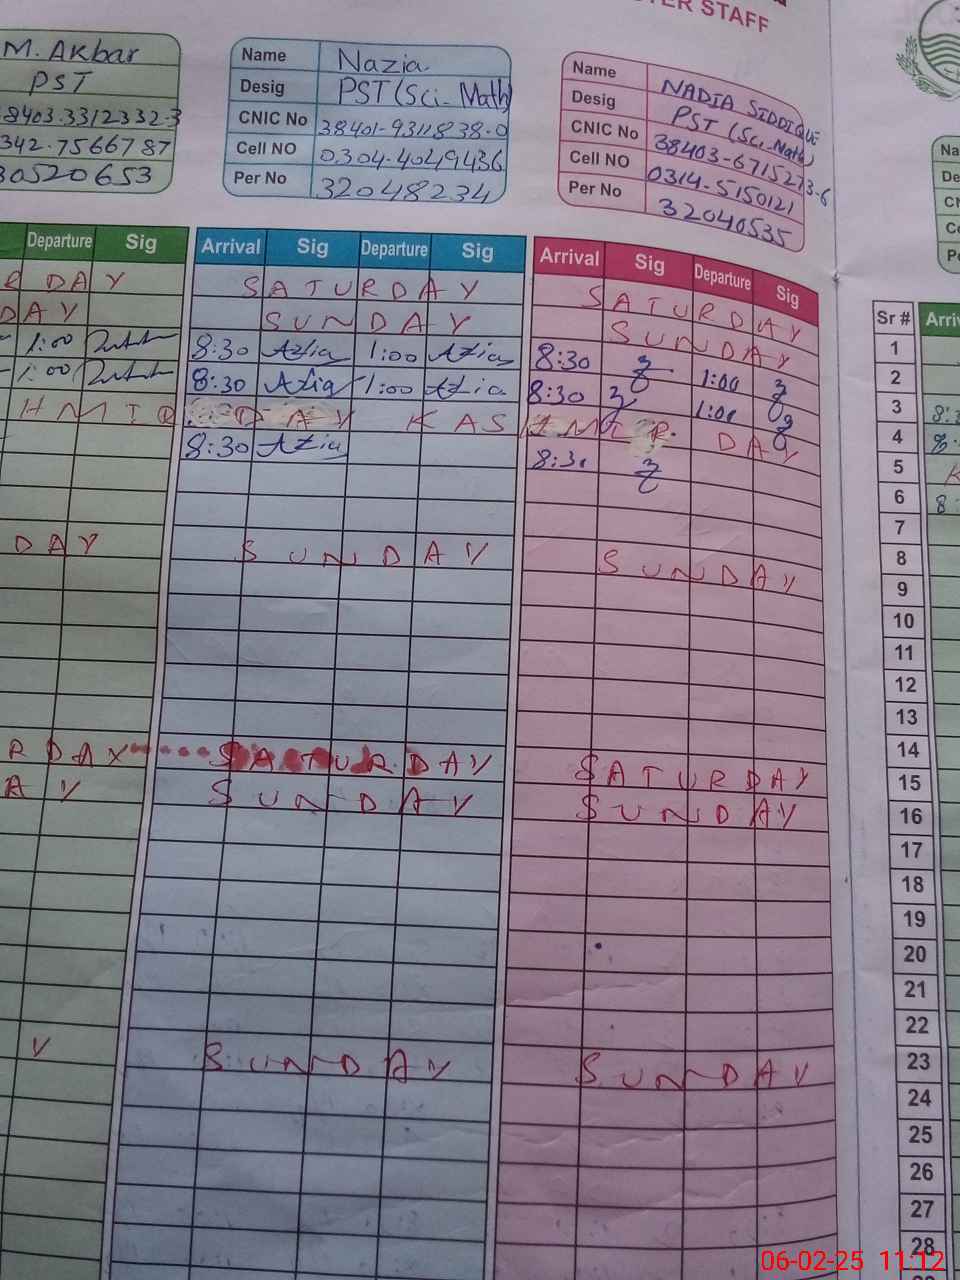 STAFF
M. Akbar
PST
8403-3312332-3
342-7566787
30520653
Name Nazia
Desig PST (Sci-Math)
CNIC No 38401-9311838-0
Cell NO 0304-4049436
Per No 32048234
Name NADIA SIDDIQUE
Desig PST (Sci-Math)
CNIC No 38403-6715273-6
Cell NO 0314-5150121
Per No 32040535
Departure Sig
R DAY
DAY
1:00
1:00
HMIR
DAY
R DAY
A Y
Y
Arrival Sig Departure Sig
SATURDAY
SUNDAY
8:30 Azia 1:00 Azia
8:30 Azia 1:00 Azia
DAY KAS
8:30 Azia
SUNDAY
SATURDAY
SUNDAY
SUNDAY
Arrival Sig Departure Sig
SATURDAY
SUNDAY
8:30 1:00
8:30 1:00
HMIR DAY
8:30
SUNDAY
SATURDAY
SUNDAY
SUNDAY
Na
De
CN
Ce
Pe
Sr # Arriv
1
2
3 8:3
4 8:
5 K
6 8:
7
8
9
10
11
12
13
14
15
16
17
18
19
20
21
22
23
24
25
26
27
28
06-02-25 11:12